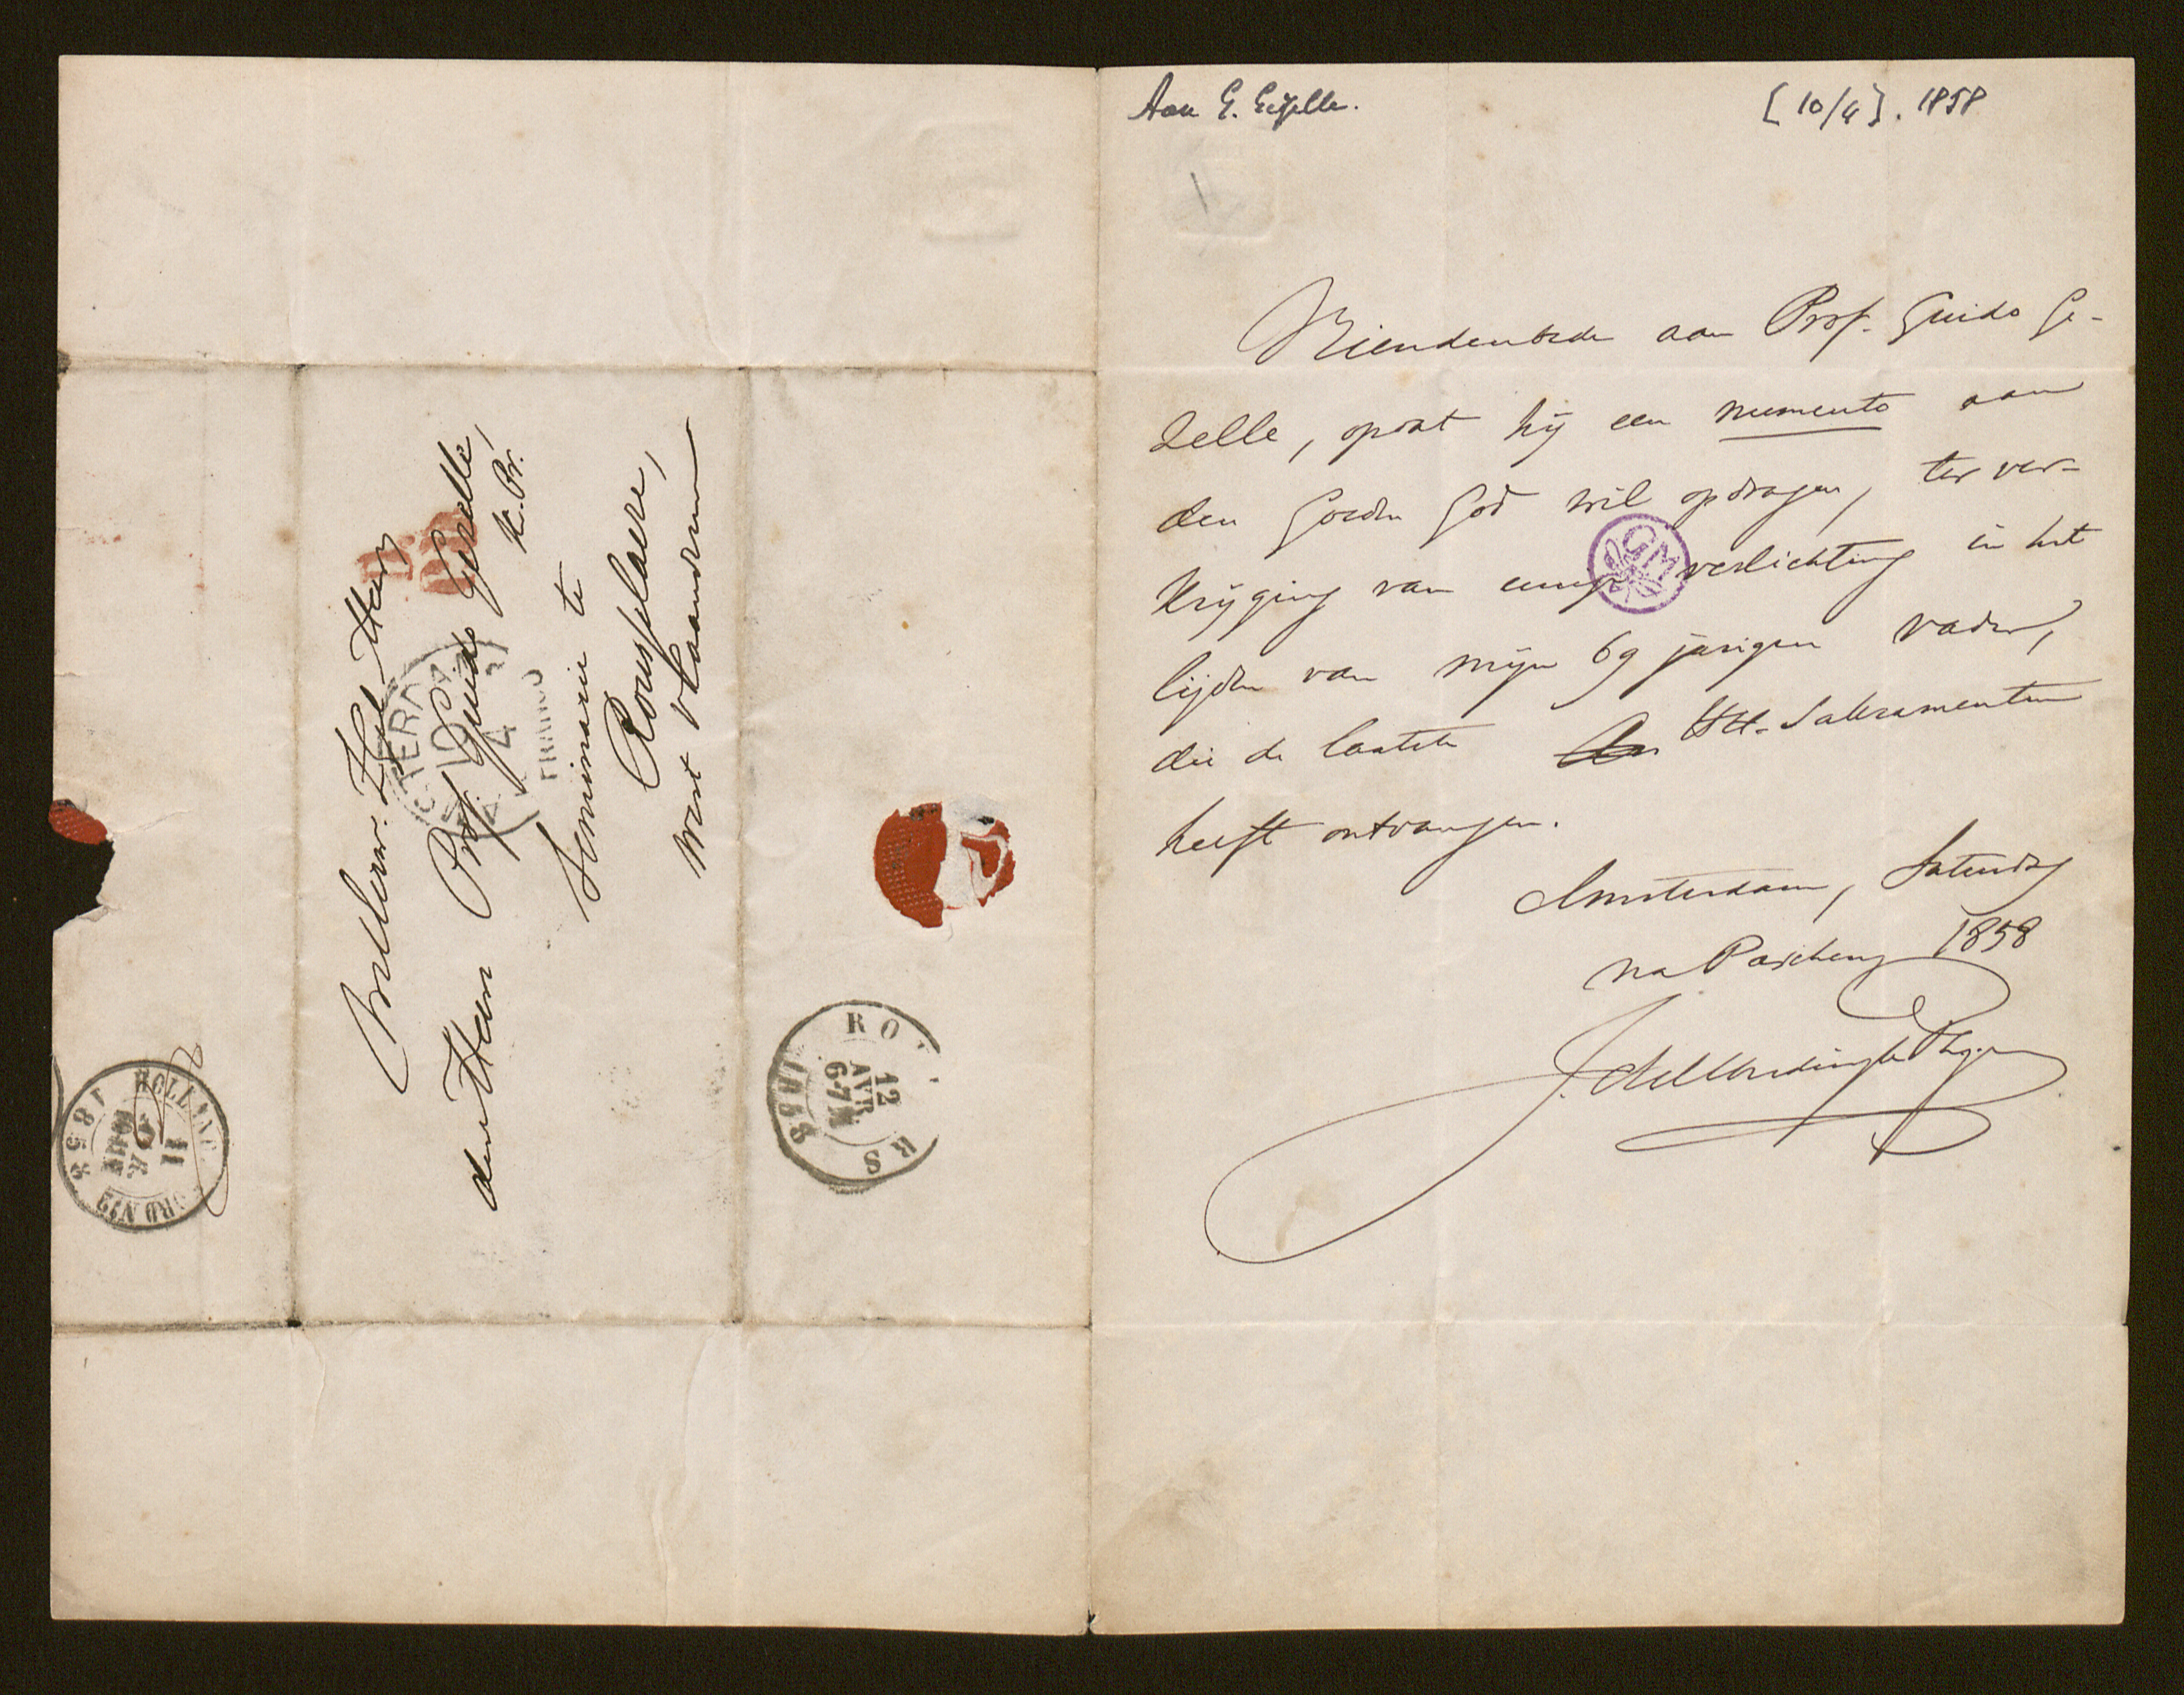 Weleerw. Zeel Heer
den Heer Prof. Guido Gezelle,
K. Pr.
Seminarie te
Rousselaere,
West Vlaandren
FRANCO
HOLLAND
11
1858
12
AVR
6-7M
1858
Aan G. Gezelle.
[10/4]. 1858
1
Vriendenbede aan Prof. Guido Ge-
zelle, opdat hij een memento aan
den Goeden God wil opdragen, ter ver-
krijging van eenige verlichting in het
GM
lijden van mijn 69 jarigen vader,
die de laatste HH. Sakramenten
heeft ontvangen.
Amsterdam, Saturdag
na Paschen, 1858
J. A. Alberdingk Thijm